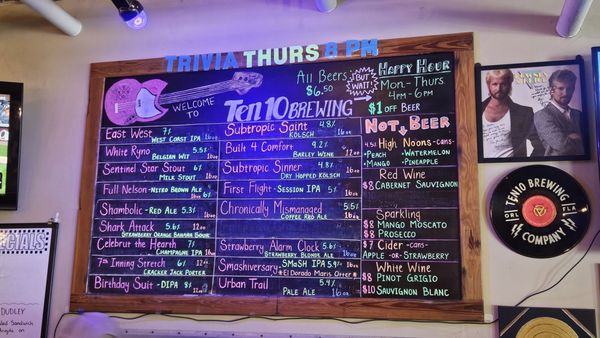 TRIVIA THURS 8 PM
WELCOME TO
Ten10 BREWING
All Beers
$6.50
BUT WAIT!
HAPPY HOUR
Mon.-Thurs
4PM-6PM
$1 OFF BEER
East West 7%
West Coast IPA 16oz
White Ryno 5.5%
Belgian Wit
Sentinel Star Stout 6%
Milk Stout
Full Nelson - Nitro Brown Ale
Shambolic - Red Ale 5.3%
16oz
Shark Attack 5.6% 12oz
Strawberry Orange Banana
Celebrux the Hearth 7%
Champagne IPA 16oz
7th Inning Stretch 6% 12oz
Cracker Jack Porter
Birthday Suit - DIPA 12oz
Subtropic Saint 4.8%
Kolsch 16oz
Built 4 Comfort 9.2%
Barley Wine 12oz
Subtropic Sinner 4.8%
Dry Hopped Kolsch 16oz
First Flight - Session IPA 5%
16oz
Chronically Mismanaged 5.5%
Coffee Red Ale 16oz
Strawberry Alarm Clock 5.6%
Strawberry Blonde Ale 16oz
Smashiversary SMaSH IPA 5.9%
*El Dorado Maris Otter* 16oz
Urban Trail 5.4%
Pale Ale 16oz
Not Beer
4.5% High Noons -cans-
-Peach -Watermelon
-Mango -Pineapple
Red Wine
$8 Cabernet Sauvignon
Sparkling
$8 Mango Moscato
$8 Prosecco
$7 Cider -cans-
Apple -or- Strawberry
White Wine
$8 Pinot Grigio
$10 Sauvignon Blanc
TEN10 BREWING
ORL FLA
COMPANY
DUDLEY